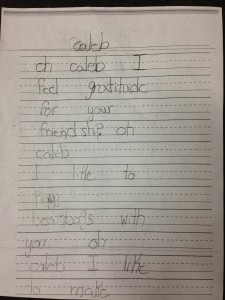 caleb
oh caleb I
feel gratitude
for your
friendship oh
caleb
I like to
play
with
you oh
caleb I like
to make